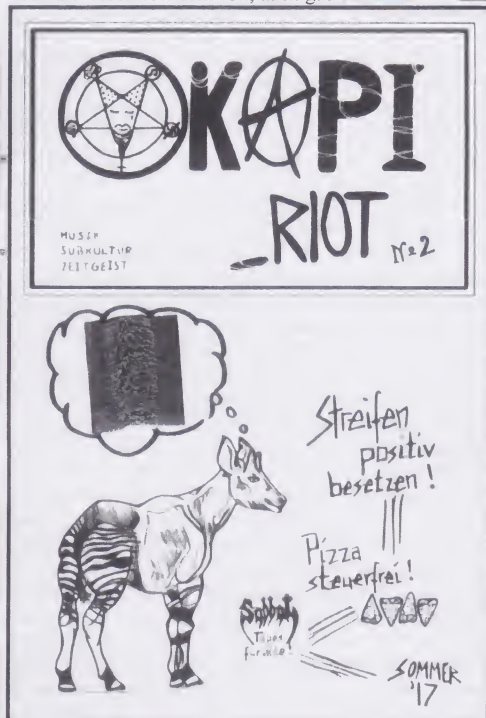 OKAPI
_RIOT
No2
MUSIK
SUBKULTUR
ZEITGEIST
Streifen
positiv
besetzen!
Pizza
steuerfrei!
Sabbat
Tapes
für alle!
SOMMER
'17